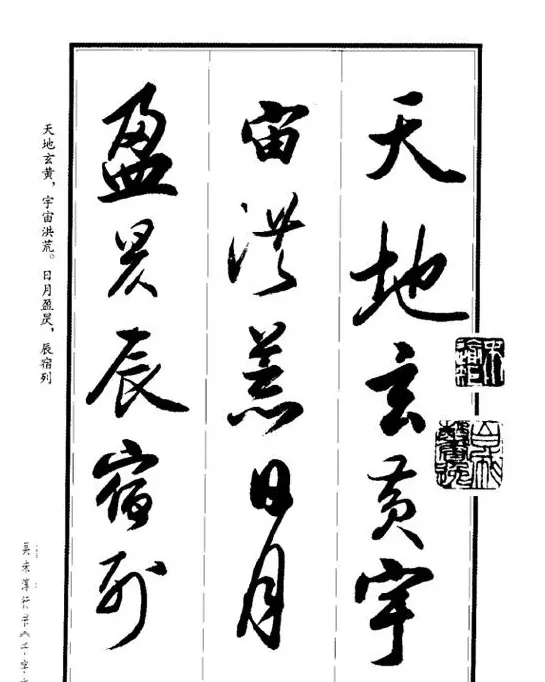 天地玄黄宇
宙洪荒日月
盈昃辰宿列
天地玄黄，宇宙洪荒。日月盈昃，辰宿列